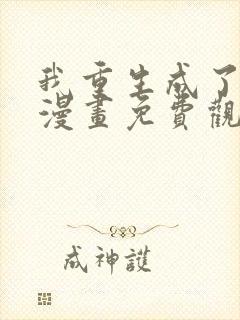 我重生成了
漫畫免費觀
成神護